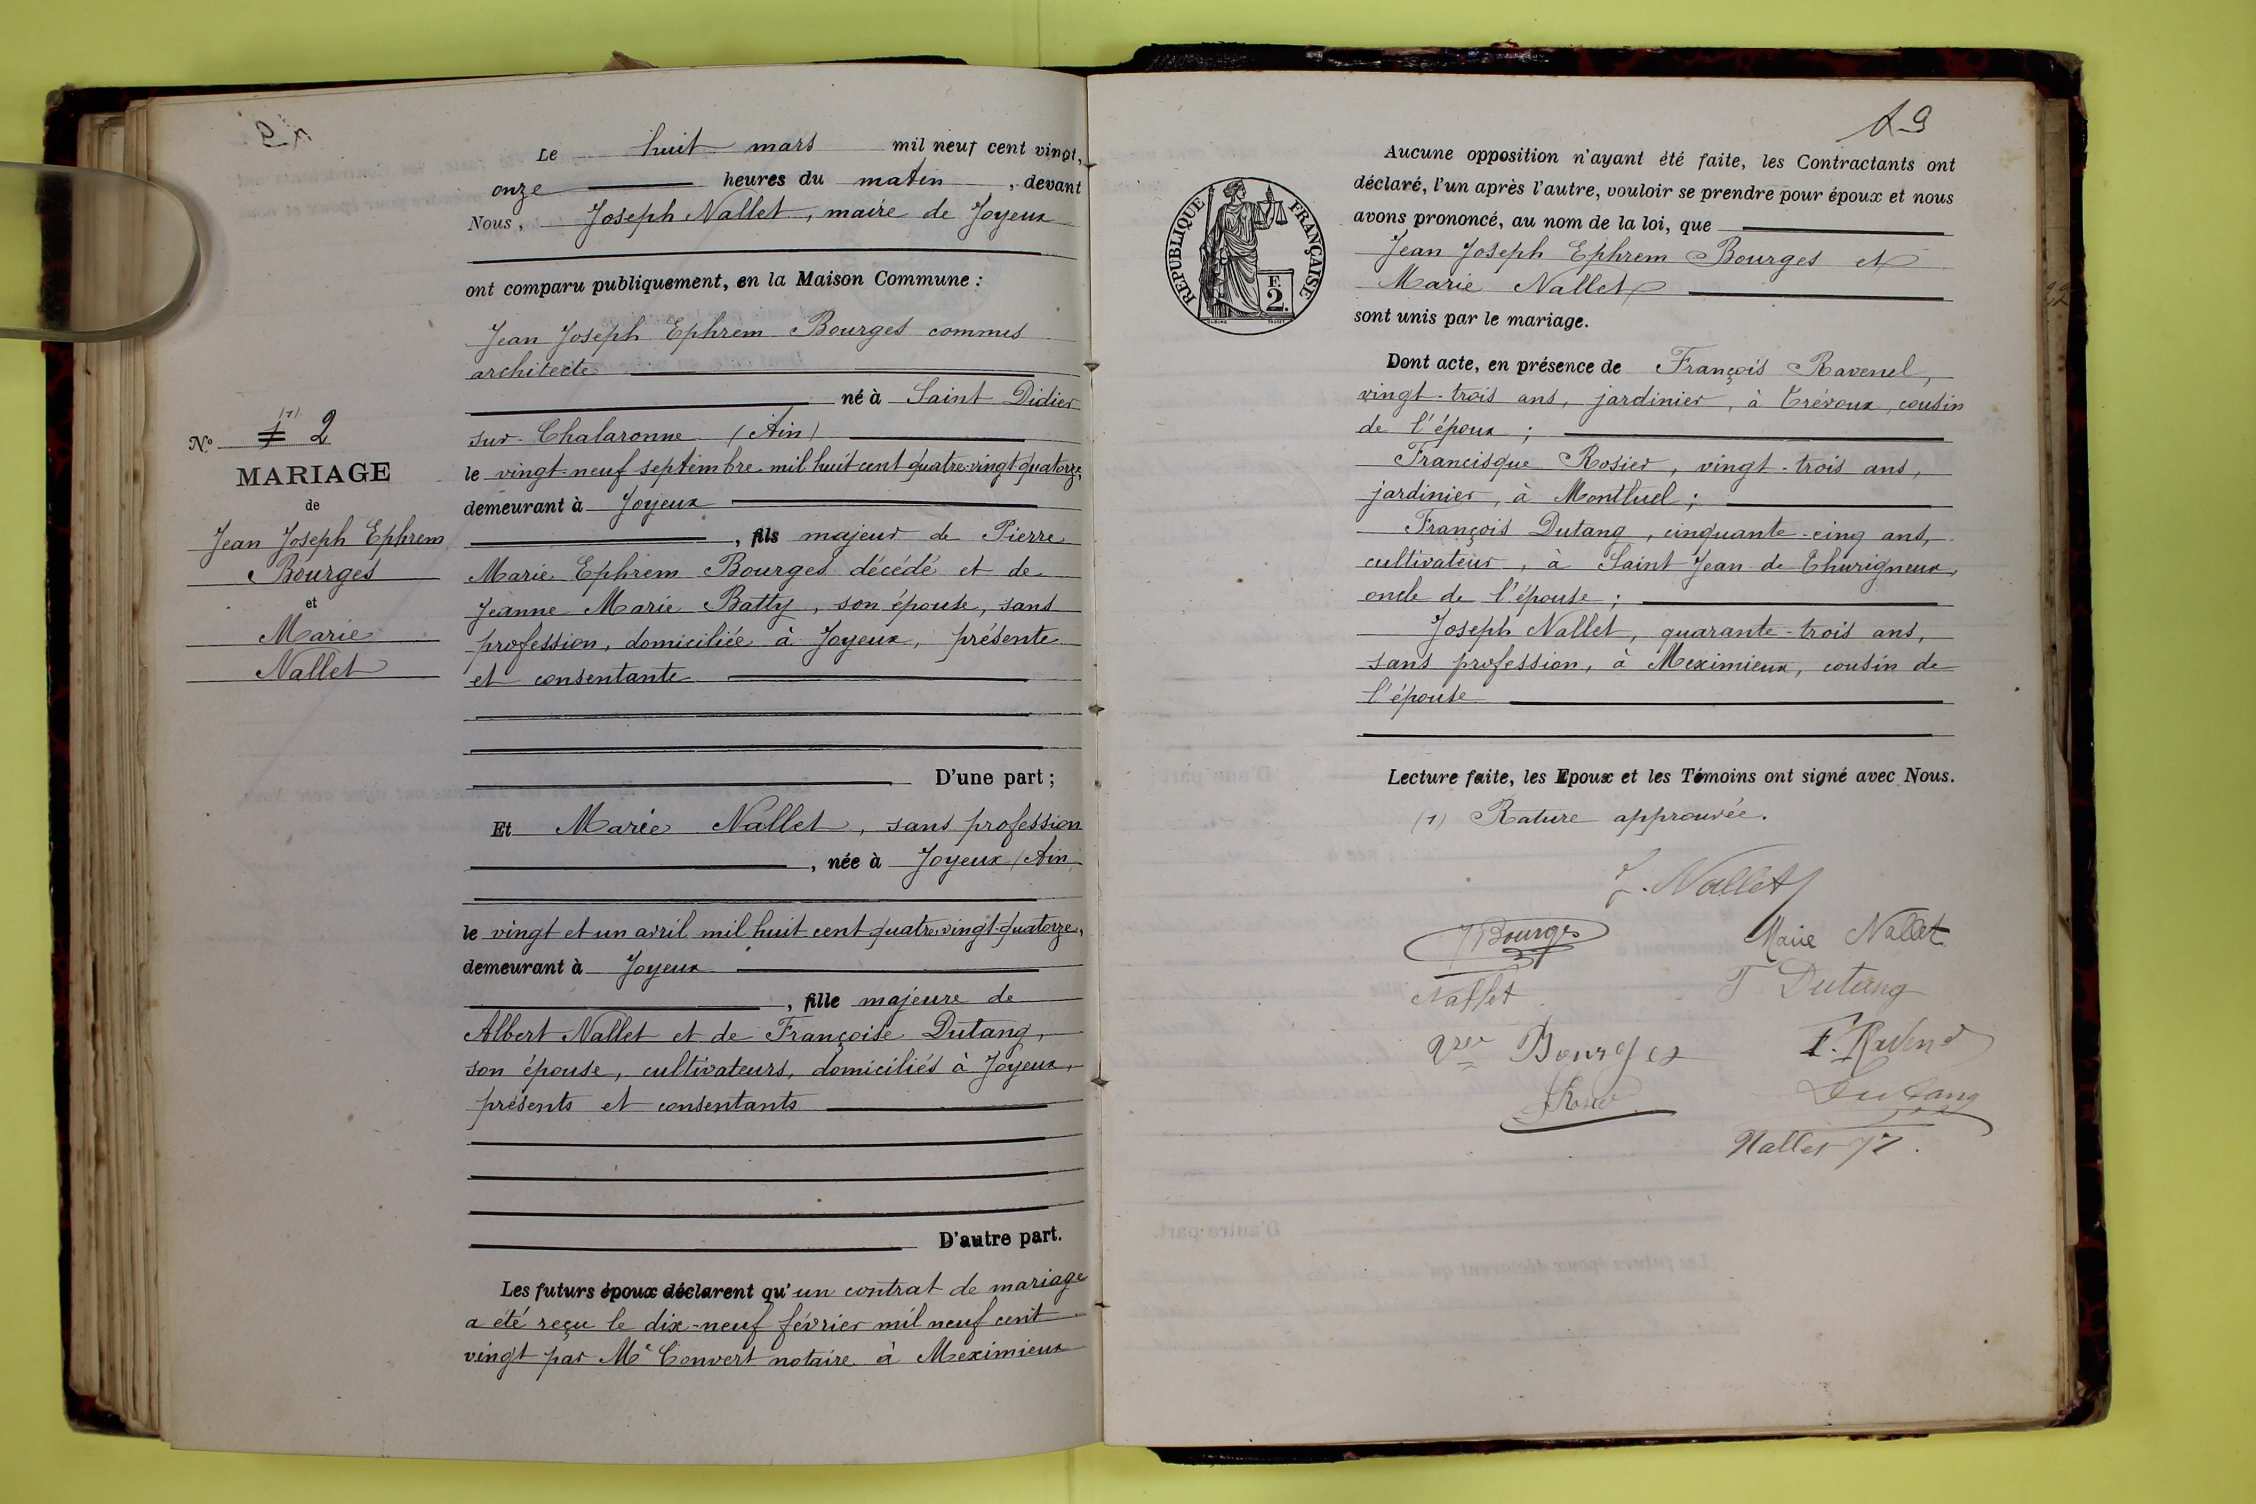 Le huit mars mil neuf cent vingt,
onze heures du matin, devant
Nous, Joseph Nallet, maire de Joyeux
ont comparu publiquement, en la Maison Commune :
Jean Joseph Ephrem Bourges commis
architecte
né à Saint Didier
sur-Chalaronne (Ain)
le vingt-neuf septembre mil huit cent quatre-vingt-quatorze,
demeurant à Joyeux
, fils majeur de Pierre
Marie Ephrem Bourges décédé et de
Jeanne Marie Batty, son épouse, sans
profession, domiciliée à Joyeux, présente
et consentante
D'une part ;
Et Marie Nallet, sans profession
, née à Joyeux (Ain)
le vingt et un avril mil huit cent quatre-vingt-quatorze,
demeurant à Joyeux
, fille majeure de
Albert Nallet et de Françoise Dutang,
son épouse, cultivateurs, domiciliés à Joyeux,
présents et consentants
D'autre part.
Les futurs époux déclarent qu'un contrat de mariage
a été reçu le dix-neuf février mil neuf cent
vingt par Me Convert notaire à Meximieux
(1)
N° 1 2
MARIAGE
de
Jean Joseph Ephrem
Bourges
et
Marie
Nallet
19
RÉPUBLIQUE FRANÇAISE
F.
2.
Aucune opposition n'ayant été faite, les Contractants ont
déclaré, l'un après l'autre, vouloir se prendre pour époux et nous
avons prononcé, au nom de la loi, que
Jean Joseph Ephrem Bourges et
Marie Nallet
sont unis par le mariage.
Dont acte, en présence de François Ravenel,
vingt-trois ans, jardinier, à Trévoux, cousin
de l'époux ;
Francisque Rosier, vingt-trois ans,
jardinier, à Montluel ;
François Dutang, cinquante-cinq ans,
cultivateur, à Saint Jean de Thurigneux,
oncle de l'épouse ;
Joseph Nallet, quarante-trois ans,
sans profession, à Meximieux, cousin de
l'épouse
Lecture faite, les Epoux et les Témoins ont signé avec Nous.
(1) Rature approuvée.
J. Nallet
J Bourges
Marie Nallet
Nallet
F Dutang
Bourges
F. Ravenel
Dutang
Nallet